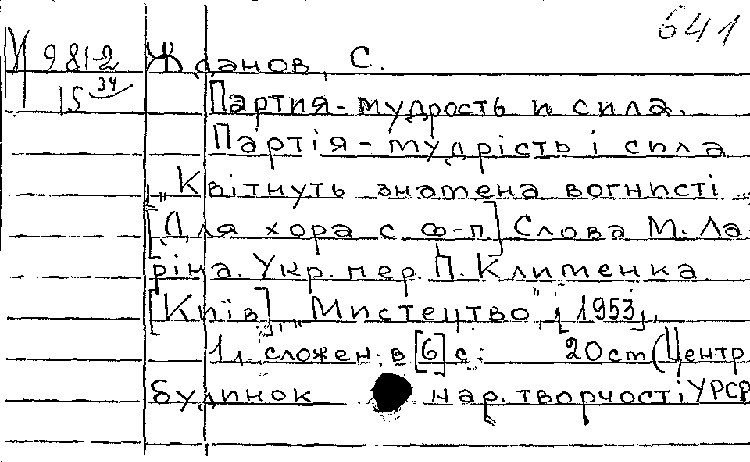 641
М 981-2 Жданов, С.
15 34 Партия - мудрость и сила.
Партія - мудрість і сила
„Квітнуть знамена вогнисті..."
[Для хора с ф-п.] Слова М. Ла-
ріна. Укр. пер. П. Клименка
[Київ], „Мистецтво", [1953].
1 л. сложен. в [6] с. 20 см (Центр.
будинок нар. творчості УРСР